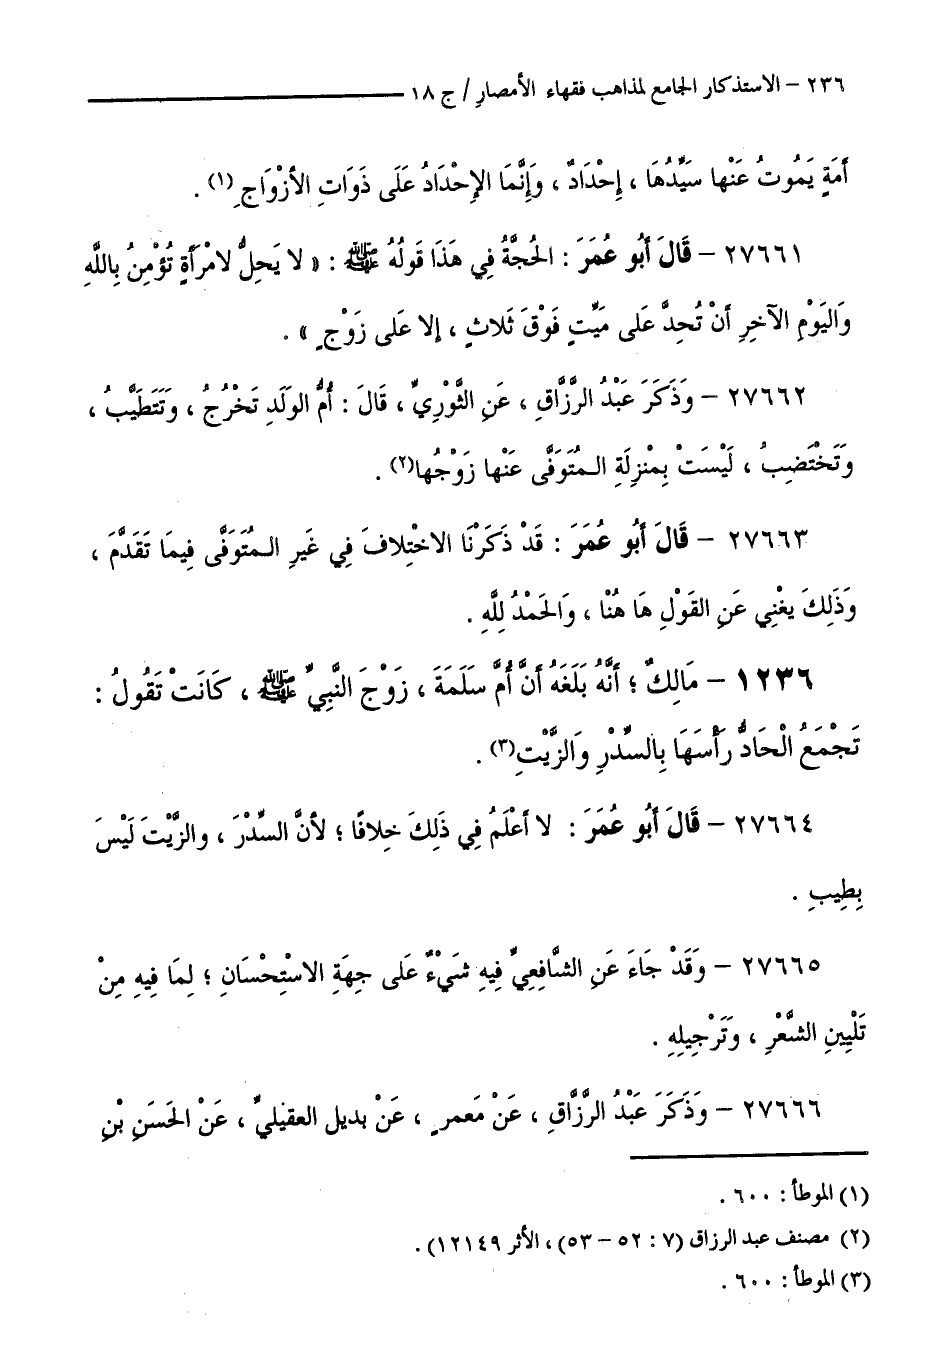 ٢٣٦ – الاستذكار الجامع لمذاهب فقهاء الأمصار / ج ١٨
أَمَةٍ يَمُوتُ عَنْها سَيِّدُهَا ، إِحْدَادٌ ، وَإِنَّمَا الإِحْدَادُ عَلَى ذَوَاتِ الأَزْوَاجِ (١) .
٢٧٦٦١ – قَالَ أَبُو عُمَرَ : الحُجَّةُ فِي هَذَا قَوْلُهُ ﷺ : « لا يَحِلُّ لامْرَأَةٍ تُؤْمِنُ بِاللَّهِ
وَاليَوْمِ الآخِرِ أَنْ تُحِدَّ عَلى مَيِّتٍ فَوْقَ ثَلاثٍ ، إِلا عَلى زَوْجٍ » .
٢٧٦٦٢ – وَذَكَرَ عَبْدُ الرَّزَّاقِ ، عَنِ الثَّوْرِيِّ ، قَالَ : أُمُّ الوَلَدِ تَخْرُجُ ، وَتَتَطَيَّبُ ،
وَتَخْتَضِبُ ، لَيْسَتْ بِمْنزِلَةِ المُتَوَفَّى عَنْها زَوْجُها(٢) .
٢٧٦٦٣ – قَالَ أَبُو عُمَرَ : قَدْ ذَكَرْنَا الاخْتِلافَ فِي غَيرِ المُتَوَفَّى فِيمَا تَقَدَّمَ ،
وَذَلِكَ يغْنِي عَنِ القَوْلِ هَا هُنْا ، وَالحَمْدُ لِلَّهِ .
١٢٣٦ – مَالِكٌ ؛ أَنَّهُ بَلَغَهُ أَنَّ أُمَّ سَلَمَةَ ، زَوْجَ النَّبِيِّ ﷺ ، كَانَتْ تَقُولُ :
تَجْمَعُ الْحَادُّ رَأْسَهَا بِالسِّدْرِ وَالزَّيْتِ(٣) .
٢٧٦٦٤ – قَالَ أَبُو عُمَرَ : لا أَعْلَمُ فِي ذَلِكَ خِلافًا ؛ لأَنَّ السِّدْرَ ، والزَّيْتَ لَيْسَ
بِطِيبٍ .
٢٧٦٦٥ – وَقَدْ جَاءَ عَنِ الشَّافِعِيِّ فِيهِ شَيْءٌ عَلى جِهَةِ الاسْتِحْسَانِ ؛ لِمَا فِيهِ مِنْ
تَلْيِينِ الشَّعْرِ ، وَتَرْجِيلِهِ .
٢٧٦٦٦ – وَذَكَرَ عَبْدُ الرَّزَّاقِ ، عَنْ مَعمرٍ ، عَنْ بديل العقيليِّ ، عَنْ الحَسَنِ بْنِ
(١) الموطأ : ٦٠٠ .
(٢) مصنف عبد الرزاق (٧ : ٥٢ – ٥٣) ، الأثر ١٢١٤٩) .
(٣) الموطأ : ٦٠٠ .